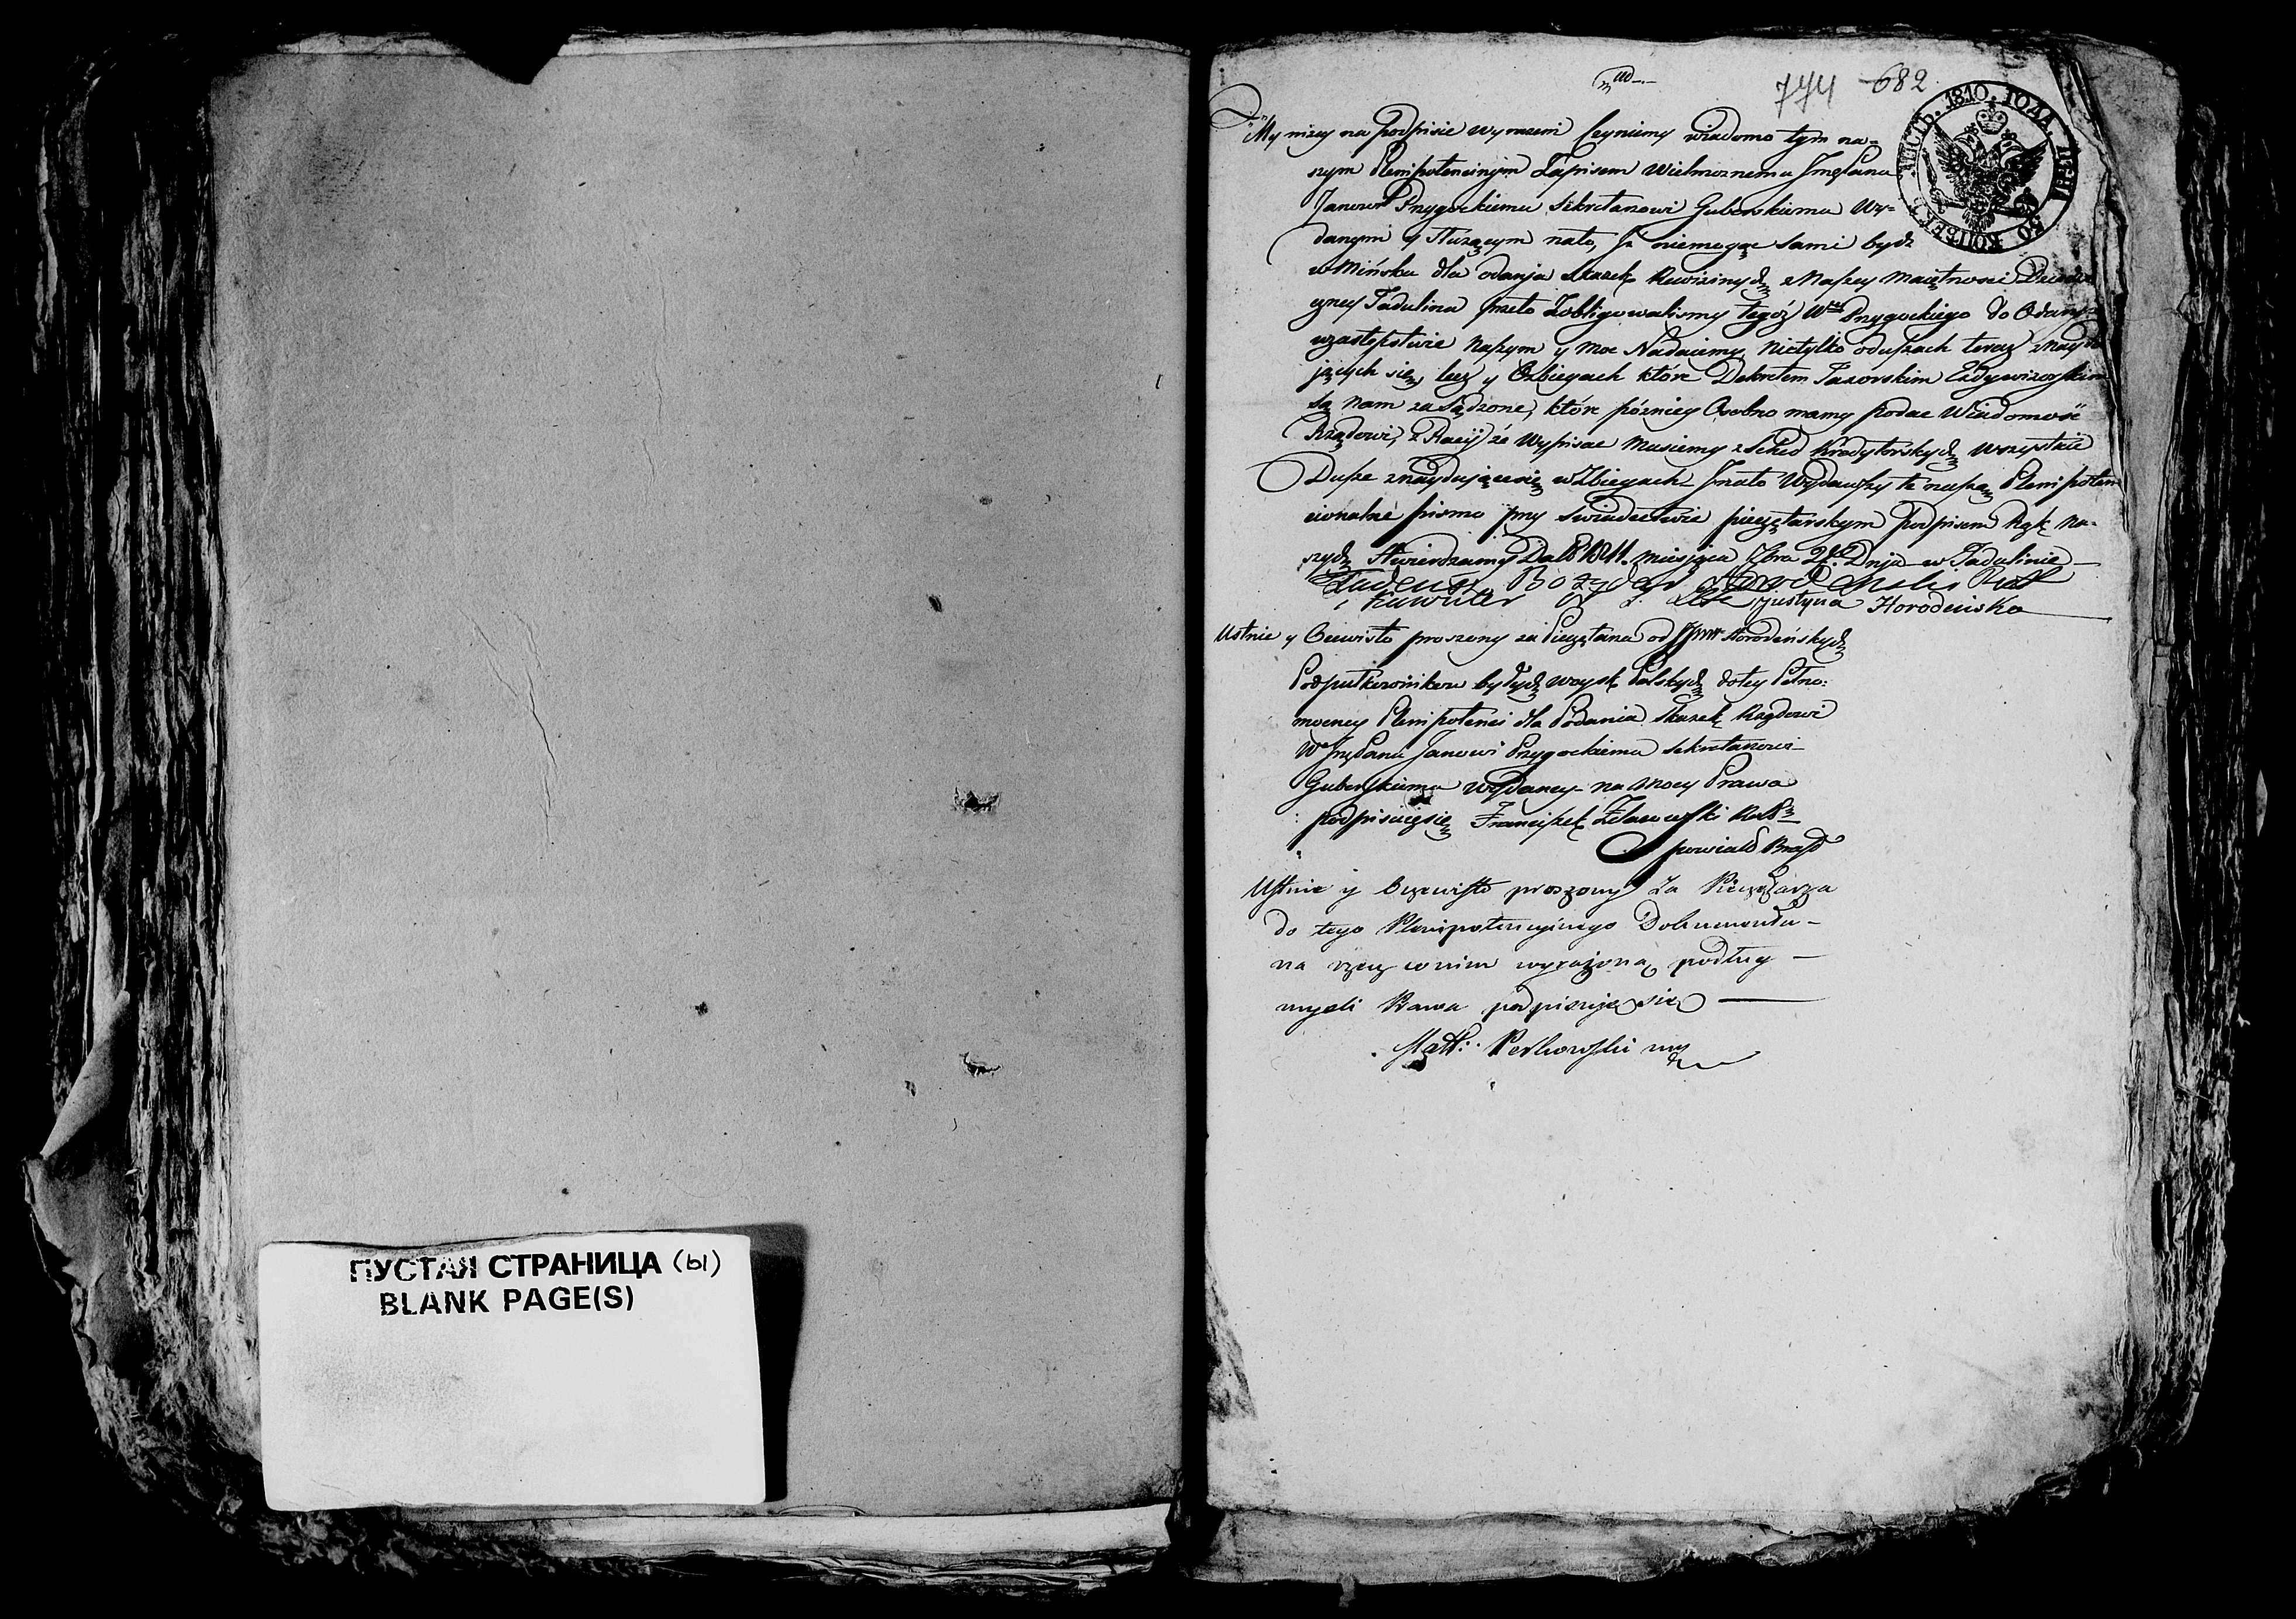 ПУСТАЯ СТРАНИЦА (ы)
BLANK PAGE(S)
774 682
1810 ГОДА. ЦѢНА 50 КОПѢЕКЪ
My niżey na podpisie wyrażeni Czyniemy wiadomo tym na-
szym Plenipotencinym Zapisem Wielmożnemu Jmę Panu
Janowi Przygockiemu Sekretarzowi Guberskiemu Wy-
danym y służącym na to, Iż niemogąc sami bydz
w Mińsku dla odania skazek Rewizinych z Naszey Maiętnosci
czney Tadulina przeto Zobligowalismy tegoż Przygockiego do
w zastępstwie Naszym y moc Nadaiemy nietylko o duszach teraz
jących się, lecz y Ozbiegach które Dekretem
są nam zasądzone, które pózniey Osobno mamy podac Wiadomość
Rządowi, z Racyi że wypisac musiemy z Sched Kredytorskych wszystkie
Dusze znaydującesię w Zbiegach I na to Wydawszy te nasze Plenipoten
cionalne pismo przy swiadectwie pieczętarskym podpisem Rąk na-
szych stwierdzamy Dat 1811 miesiąca Dnia w Tadulinie
Tadeusz Bożydar
Kawaler Justyna Horodeńska
Ustnie y Oczwisto proszony za Pieczętarza od Horodeńskych
Podpułkownikow byłych woysk Polskych do tey Pełno:
mocney Plenipotenci dla Podania Skazek Rządowi
W Jmę Panu Janowi Przygockiemu Sekretarzowi
Guberskiemu wydaney na mocy Prawa
podpisuięsię Franciszek
powiatu
Ustnie y Oczewisto proszony za Pieczętarza
do tego Plenipotencyinego Dokumentu
na rzecz w nim wyrażoną podług
mysli Prawa podpisuię się